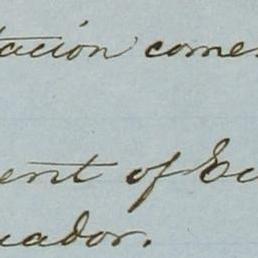 tation comes
ent of Ec
uador.